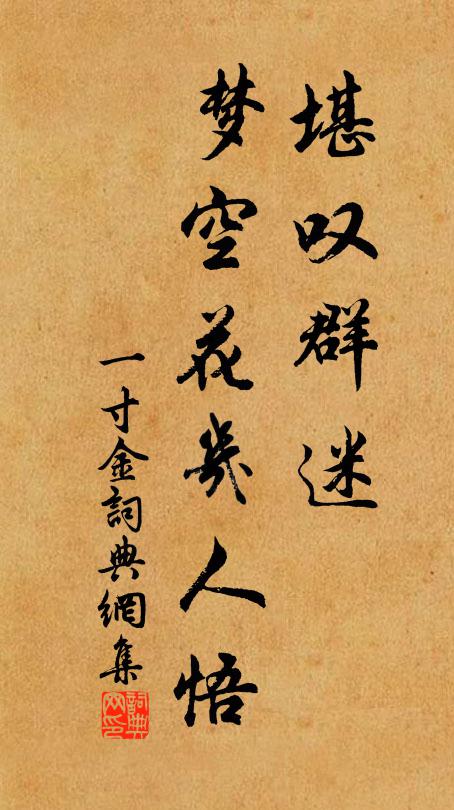 堪叹群迷
梦空花几人悟
一寸金詞典網集
詞典
网印